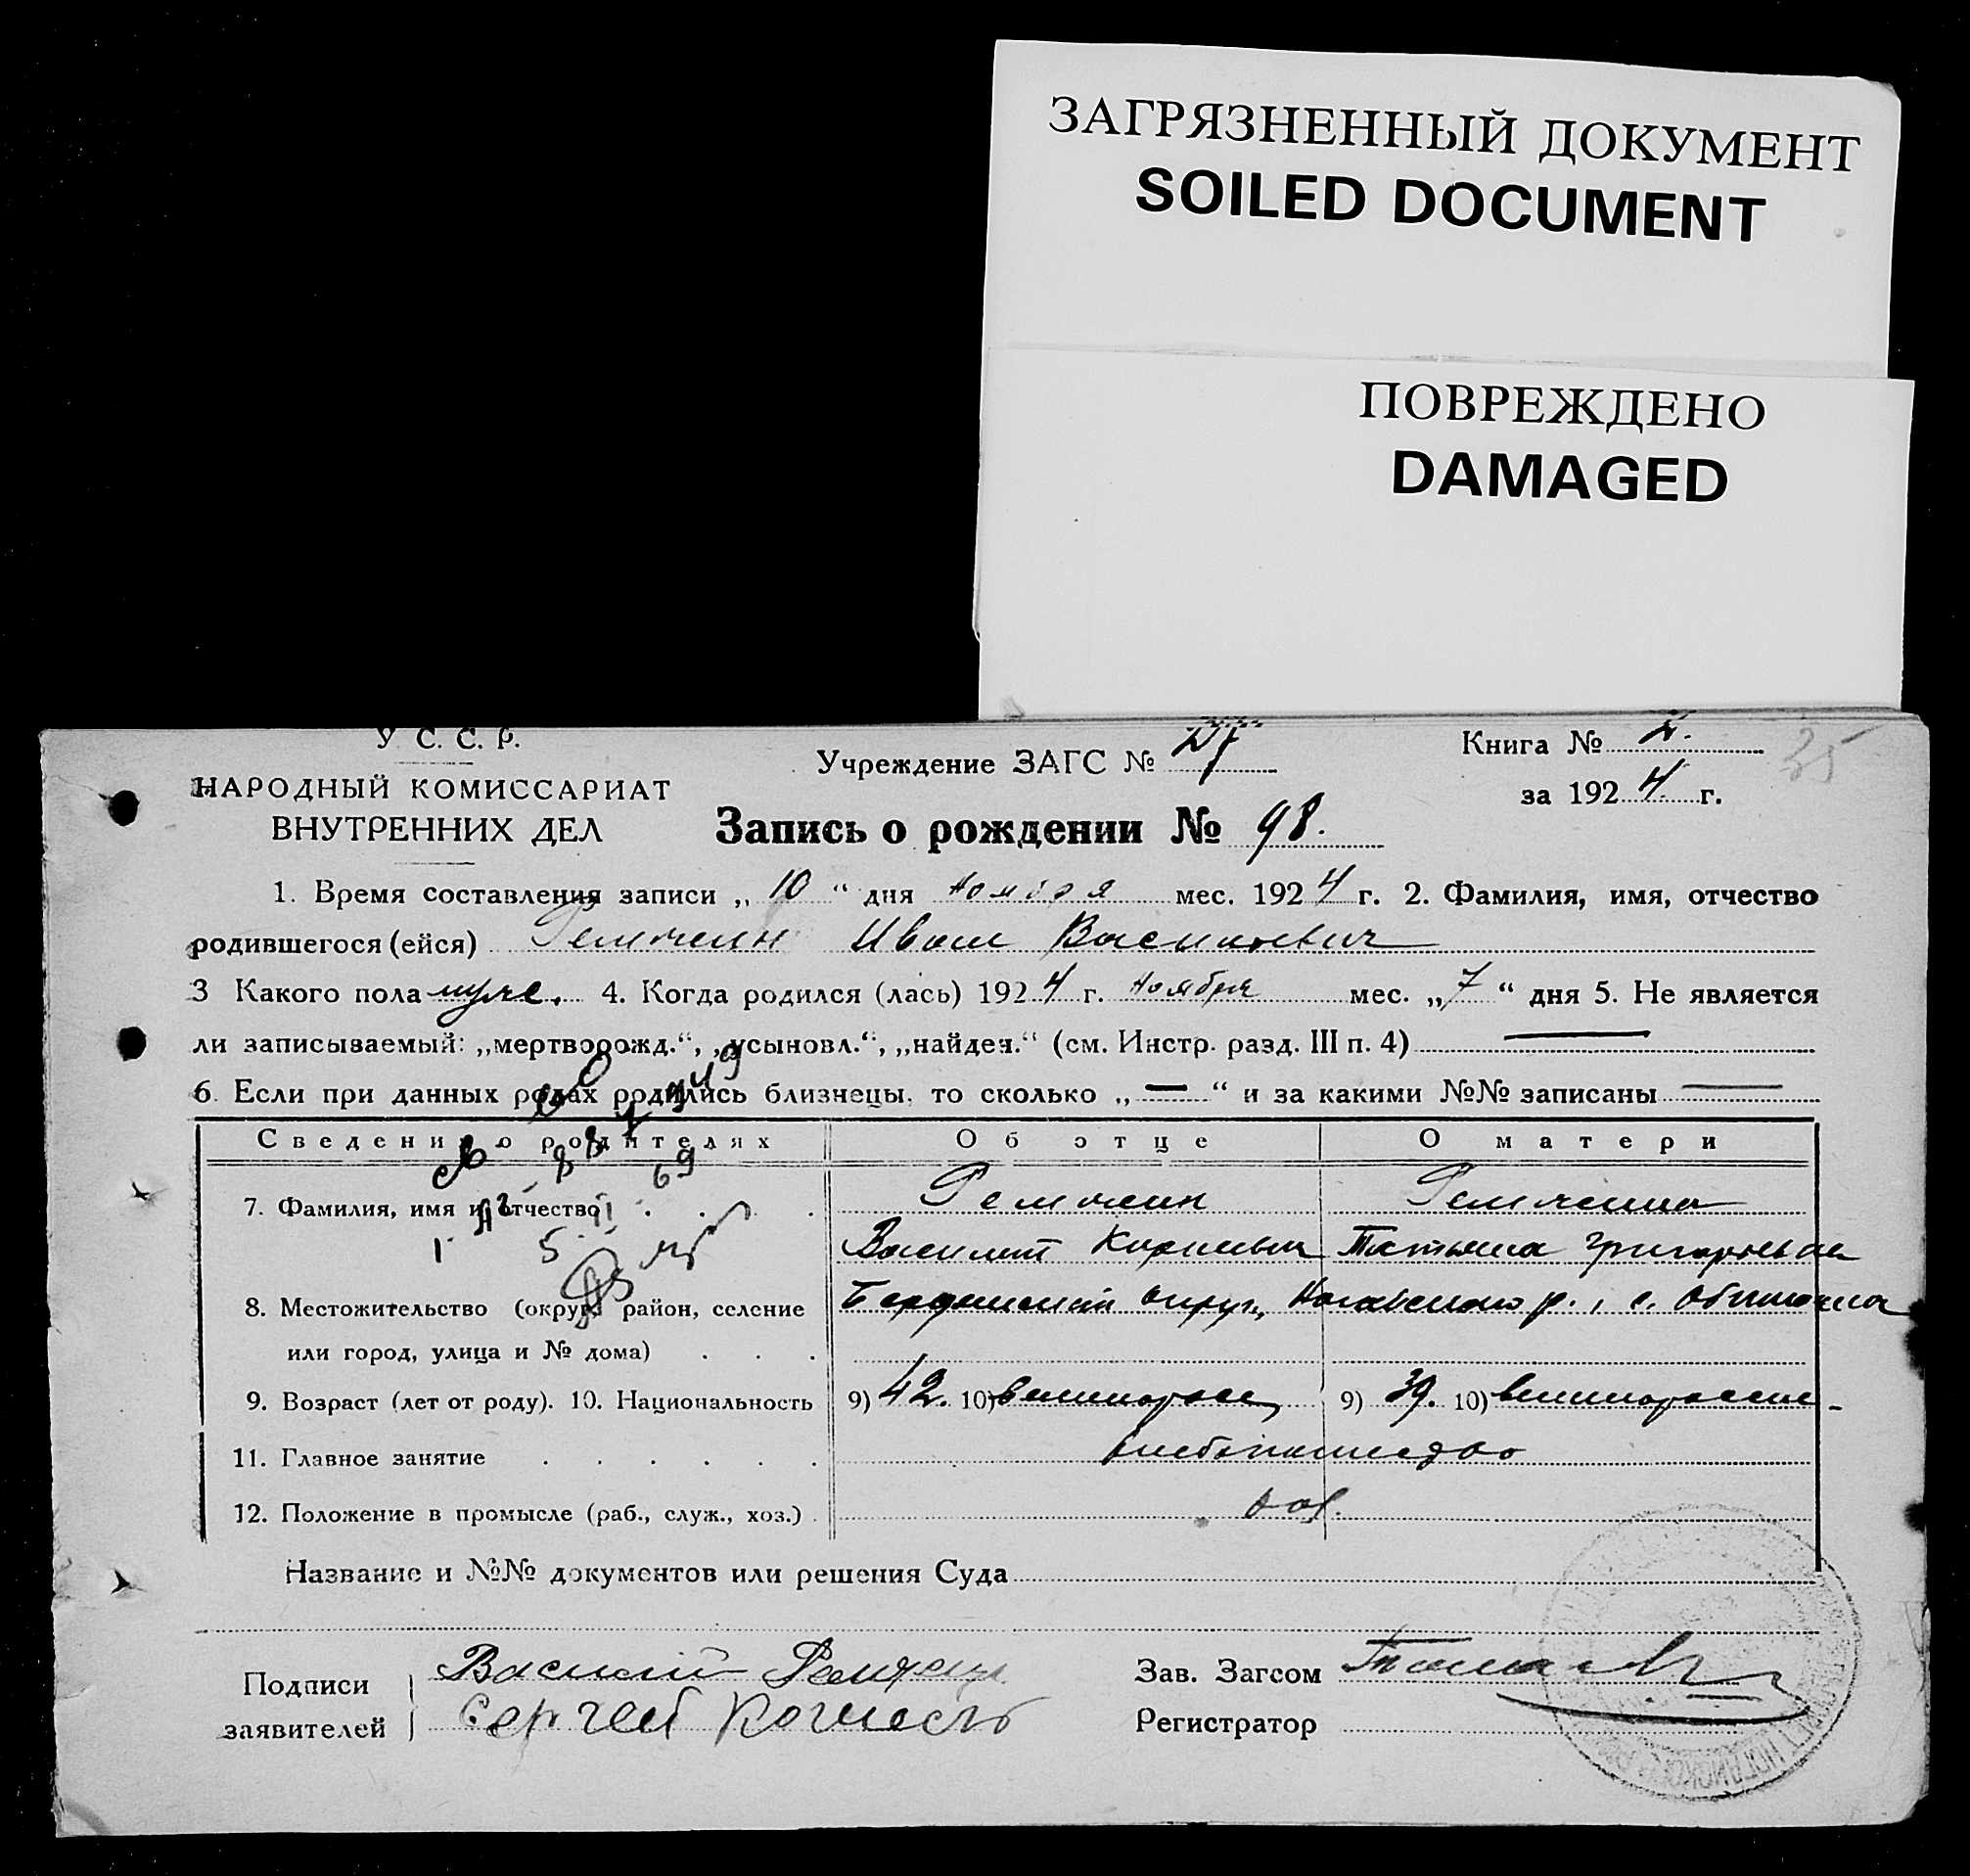 ЗАГРЯЗНЕННЫЙ ДОКУМЕНТ
SOILED DOCUMENT
ПОВРЕЖДЕНО
DAMAGED
У С. С. Р.
НАРОДНЫЙ КОМИССАРИАТ
ВНУТРЕННИХ ДЕЛ
Учреждение ЗАГС №
Книга №
35
за 1924 г.
Запись о рождении № 98.
1. Время составления записи „ 10 “ дня ноября мес. 1924 г. 2. Фамилия, имя, отчество
родившегося (ейся) Иван Васильевич
3 Какого пола муж. 4. Когда родился (лась) 1924 г. ноября мес. „ 7 “ дня 5. Не является
ли записываемый: „мертворожд.“, „усыновл.“, „найден.“ (см. Инстр. разд. III п. 4) —
6. Если при данных родах родились близнецы, то сколько „ — “ и за какими №№ записаны —
Сведения о родителях Об отце О матери
7. Фамилия, имя и отчество
Василий Татьяна Григорьевна
8. Местожительство (округ, район, селение
или город, улица и № дома)
Бердянский округ, р., с. Обиточная
9. Возраст (лет от роду). 10. Национальность 9) 42. 10) великоросс 9) 39. 10)
11. Главное занятие хлебопашество
12. Положение в промысле (раб., служ., хоз.) хоз.
Название и №№ документов или решения Суда
Подписи
заявителей
Василий
Сергей
Зав. Загсом
Регистратор